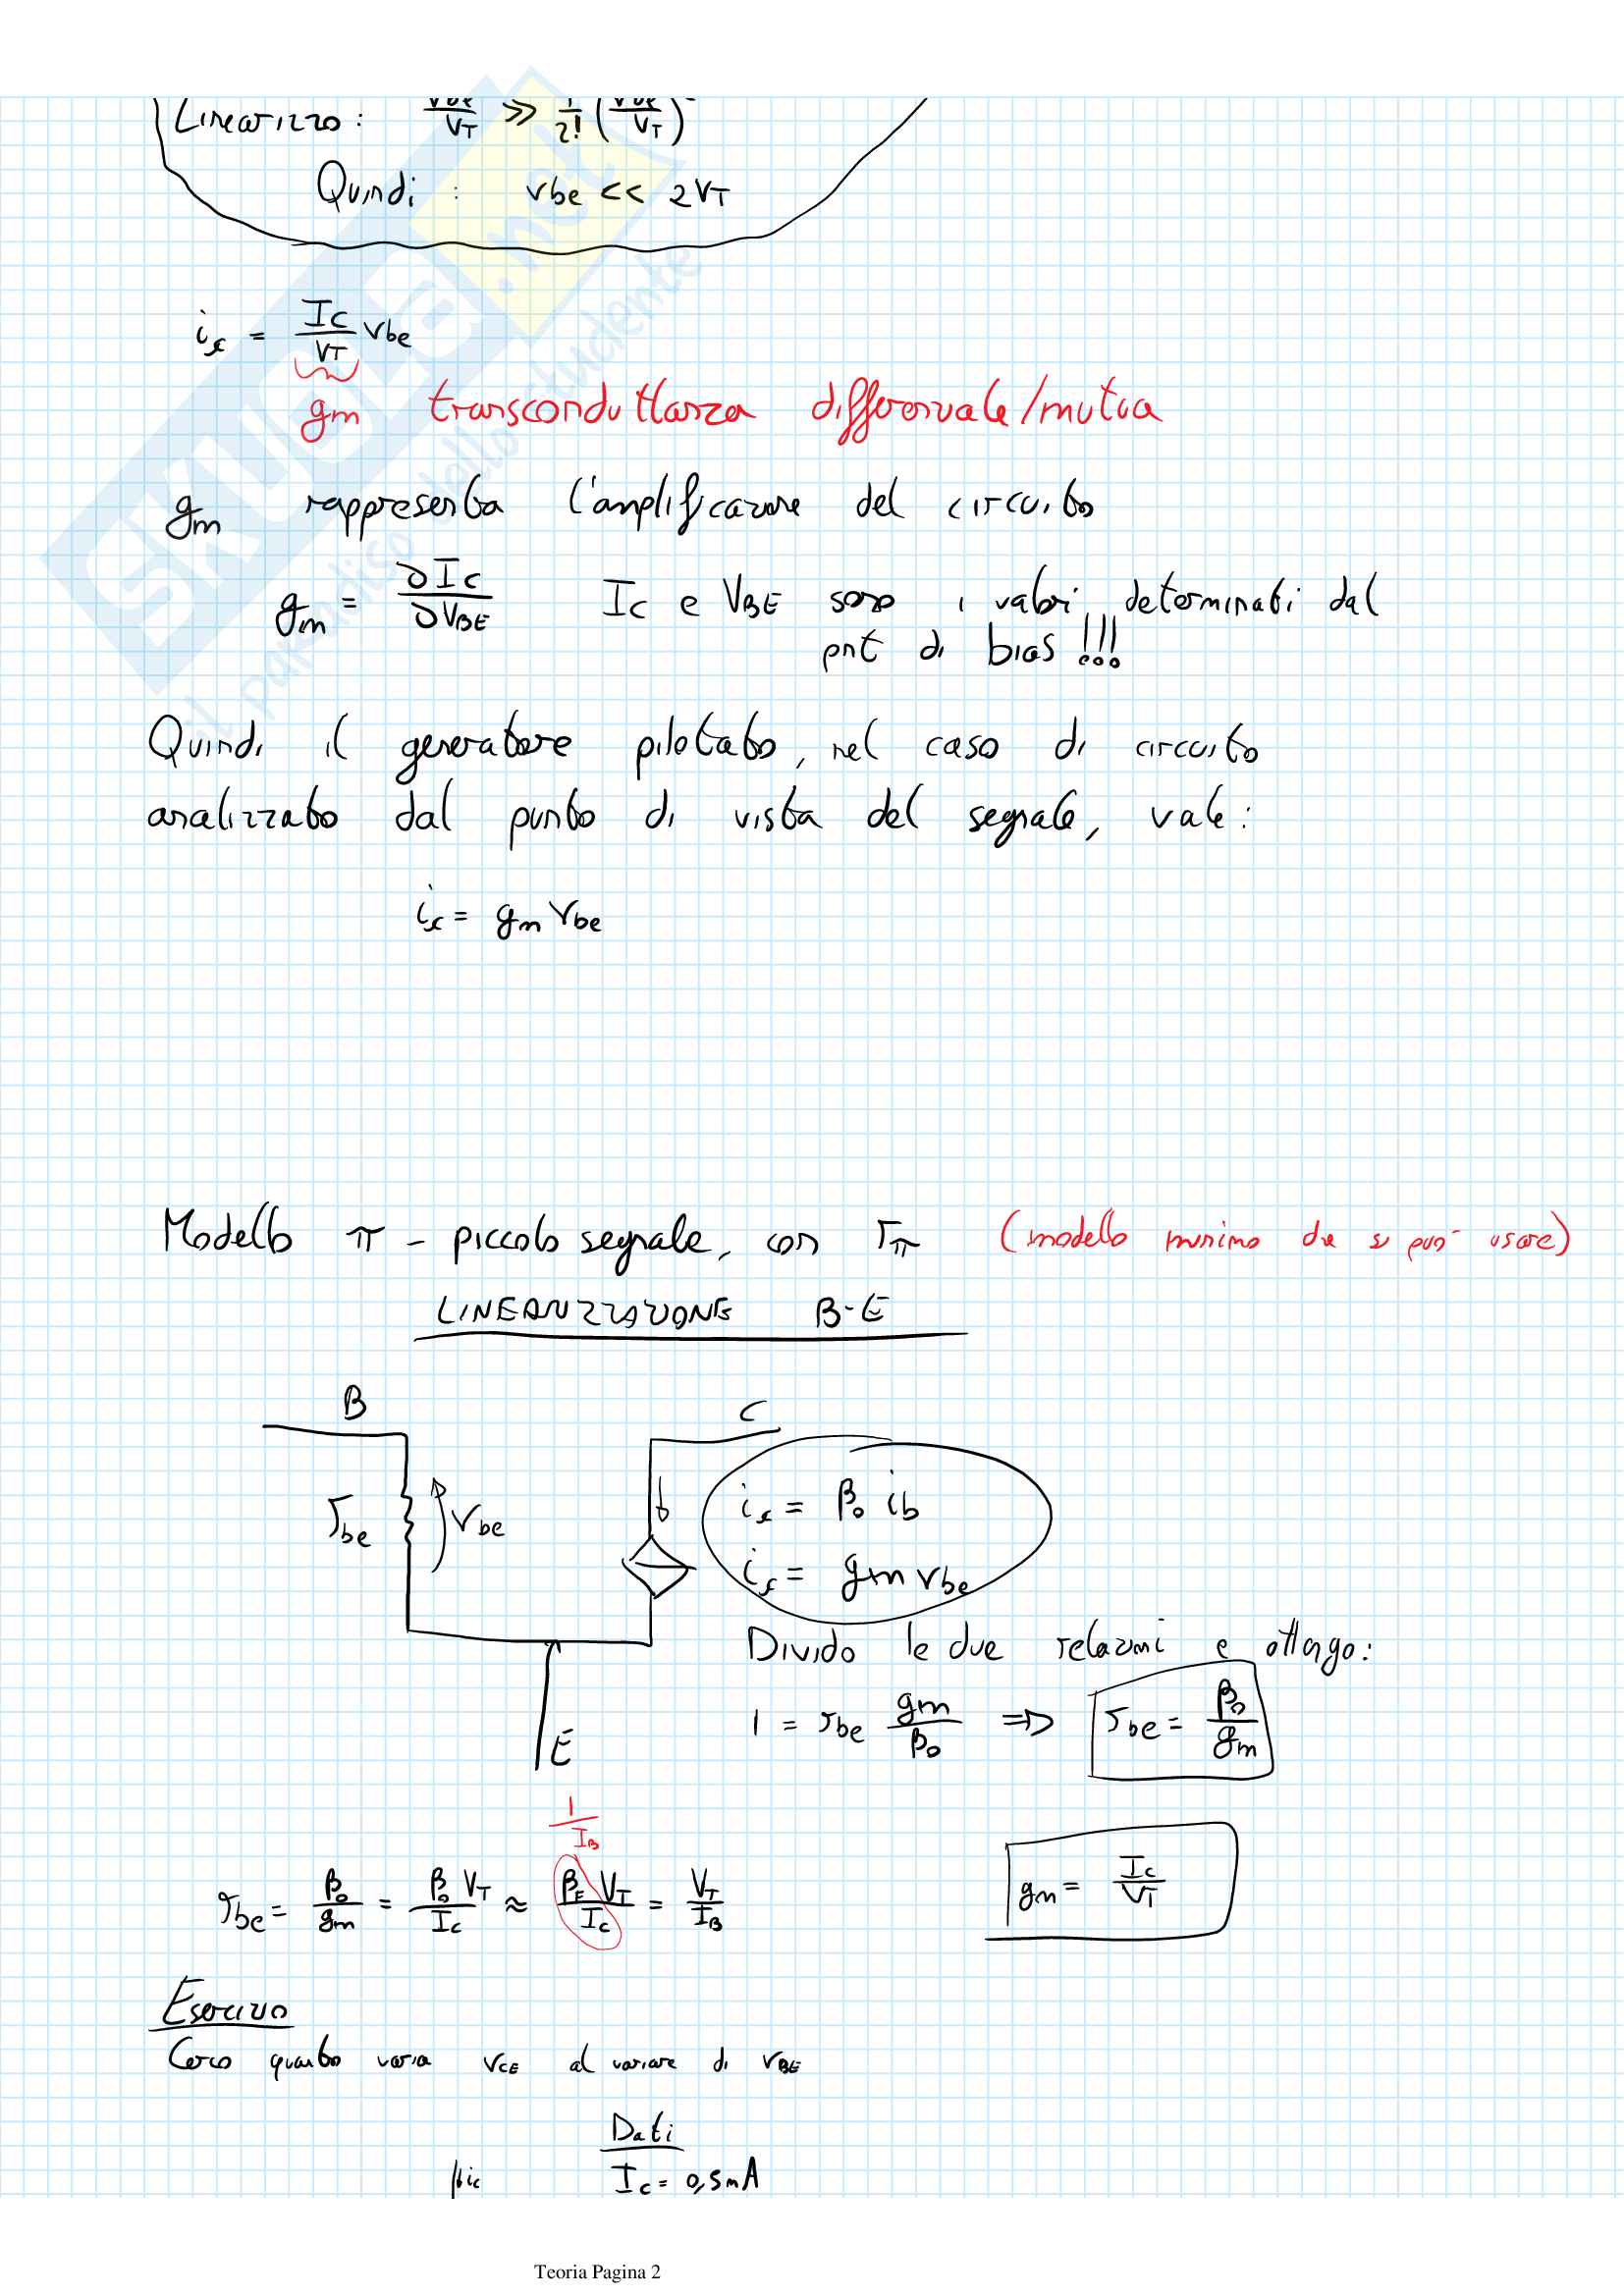 Linearizzo: vbe/VT ≫ 1/2! (vbe/VT)²
Quindi : vbe << 2VT
ic = IC/VT vbe
gm transconduttanza differenziale/mutua
gm rappresenta l'amplificazione del circuito
gm = ∂IC/∂VBE IC e VBE sono i valori determinati dal
pnt di bias !!!
Quindi il generatore pilotato, nel caso di circuito
analizzato dal punto di vista del segnale, vale:
ic = gm vbe
Modello π - piccolo segnale, con rπ (modello minimo che si può usare)
LINEARIZZAZIONE B-E
B
C
rbe
vbe
ic = β0 ib
ic = gm vbe
E
Divido le due relazioni e ottengo:
1 = rbe gm/β0 => rbe = β0/gm
1/IB
rbe = β0/gm = β0 VT/IC ≈ βF VT/IC = VT/IB
gm = IC/VT
Esercizio
Cerco quanto varia vCE al variare di vBE
Dati
ic
IC = 0,5mA
SKUOLA.net
il paradiso dello studente
Teoria Pagina 2